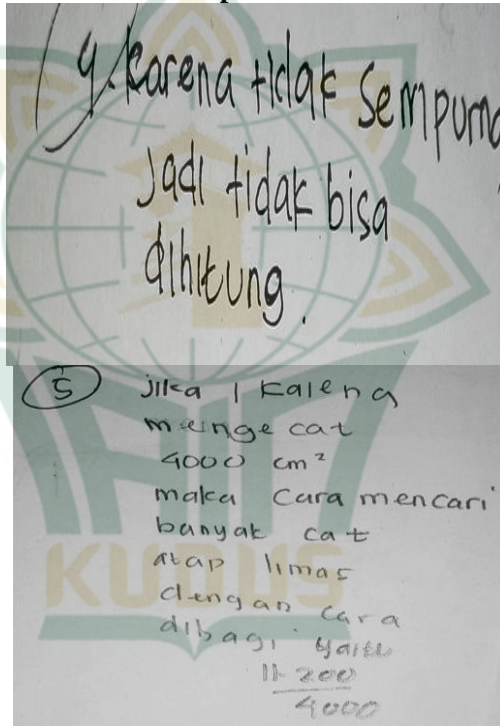 4. Karena tidak sempurna
jadi tidak bisa
dihitung.
5 jika 1 kaleng
mengecat
4000 cm²
maka cara mencari
banyak cat
atap limas
dengan cara
dibagi yaitu
11.200
4000
KUDUS